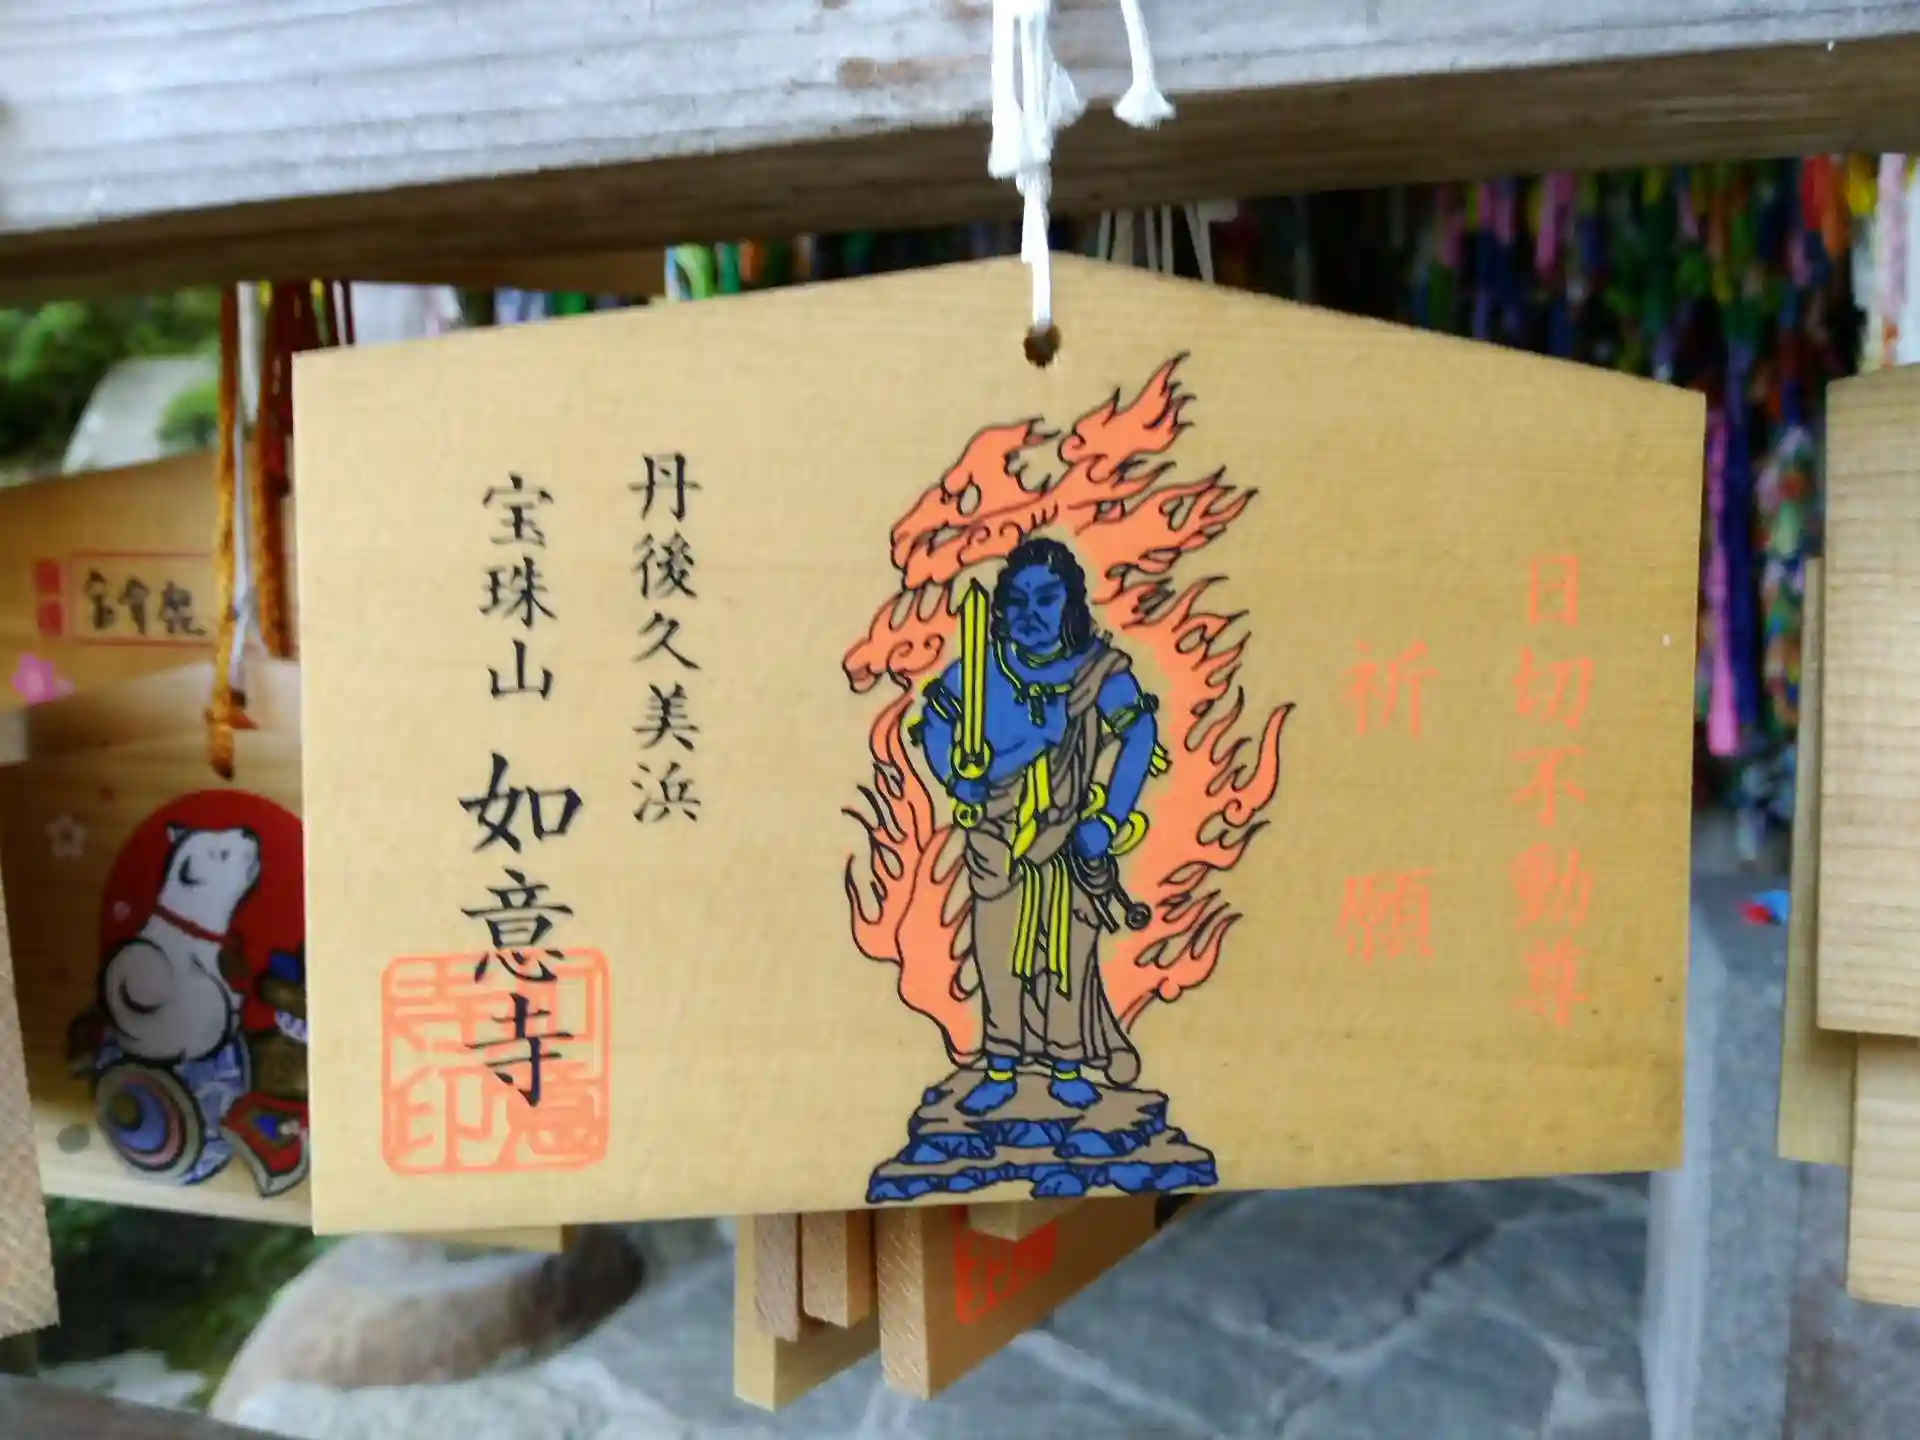 日切不動尊
祈願
丹後久美浜
宝珠山 如意寺
如意寺印